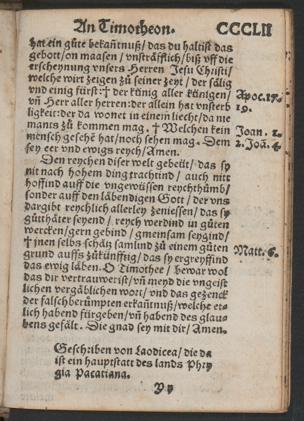 An Timotheon. CCCLII
hat ein gůte bekañtnuß/das du haltist das
gebott/on maasen/vnsträfflich/biß vff die
erscheynung vnsers Herren Jesu Christi/
welche wirt zeigen zů seiner zeyt/der sälig
vnd einig fürst:† der künig aller künigen/ Apoc.17.
vñ Herr aller herren:der allein hat vnsterb 19.
ligkeit:der da wonet in einem liecht/da nie
mants zů kommen mag. † Welchen kein Joan. 1.
mensch gesehē hat/noch sehen mag. Dem 1. Joā. 4.
sey eer vnd ewigs reych/Amen.
Den reychen diser welt gebeüt/das sy
nit nach hohem ding trachtind/ auch nitt
hoffind auff die vngewüssen reychthümb/
sonder auff den läbendigen Gott/ der vns
dargibt reychlich allerley zeniessen/das sy
gůtthäter seyend/ reych werdind in gůten
wercken/gern gebind/gmeinsam seygind/
† jnen selbs schätz samlind zů einem gůten Matt. 6.
grund auffs zůkünfftig/das sy ergreyffind
das ewig läben. O Timothee/ bewar wol
das dir vertrauwet ist/vñ meyd die vngeist
lichen vergäblichen wort/vnd das gezenck
der falschberümpten erkañtnuß/welche et-
lich habend fürgeben/vñ habend des glau-
bens gefält. Die gnad sey mit dir/Amen.
Geschriben von Laodicea/die da
ist ein hauptstatt des lands Phry
gia Pacatiana.